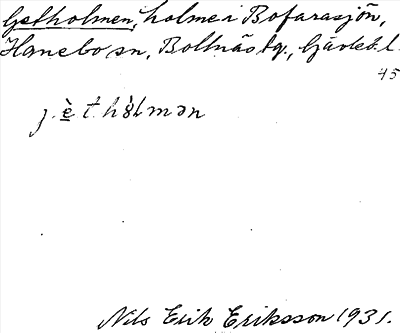 Getholmen, holme i Bofarasjön,
Hanebo sn, Bollnäs tg., Gävleb. l.
45
j. è t. h ò l m ə n
Nils Erik Eriksson 1931.